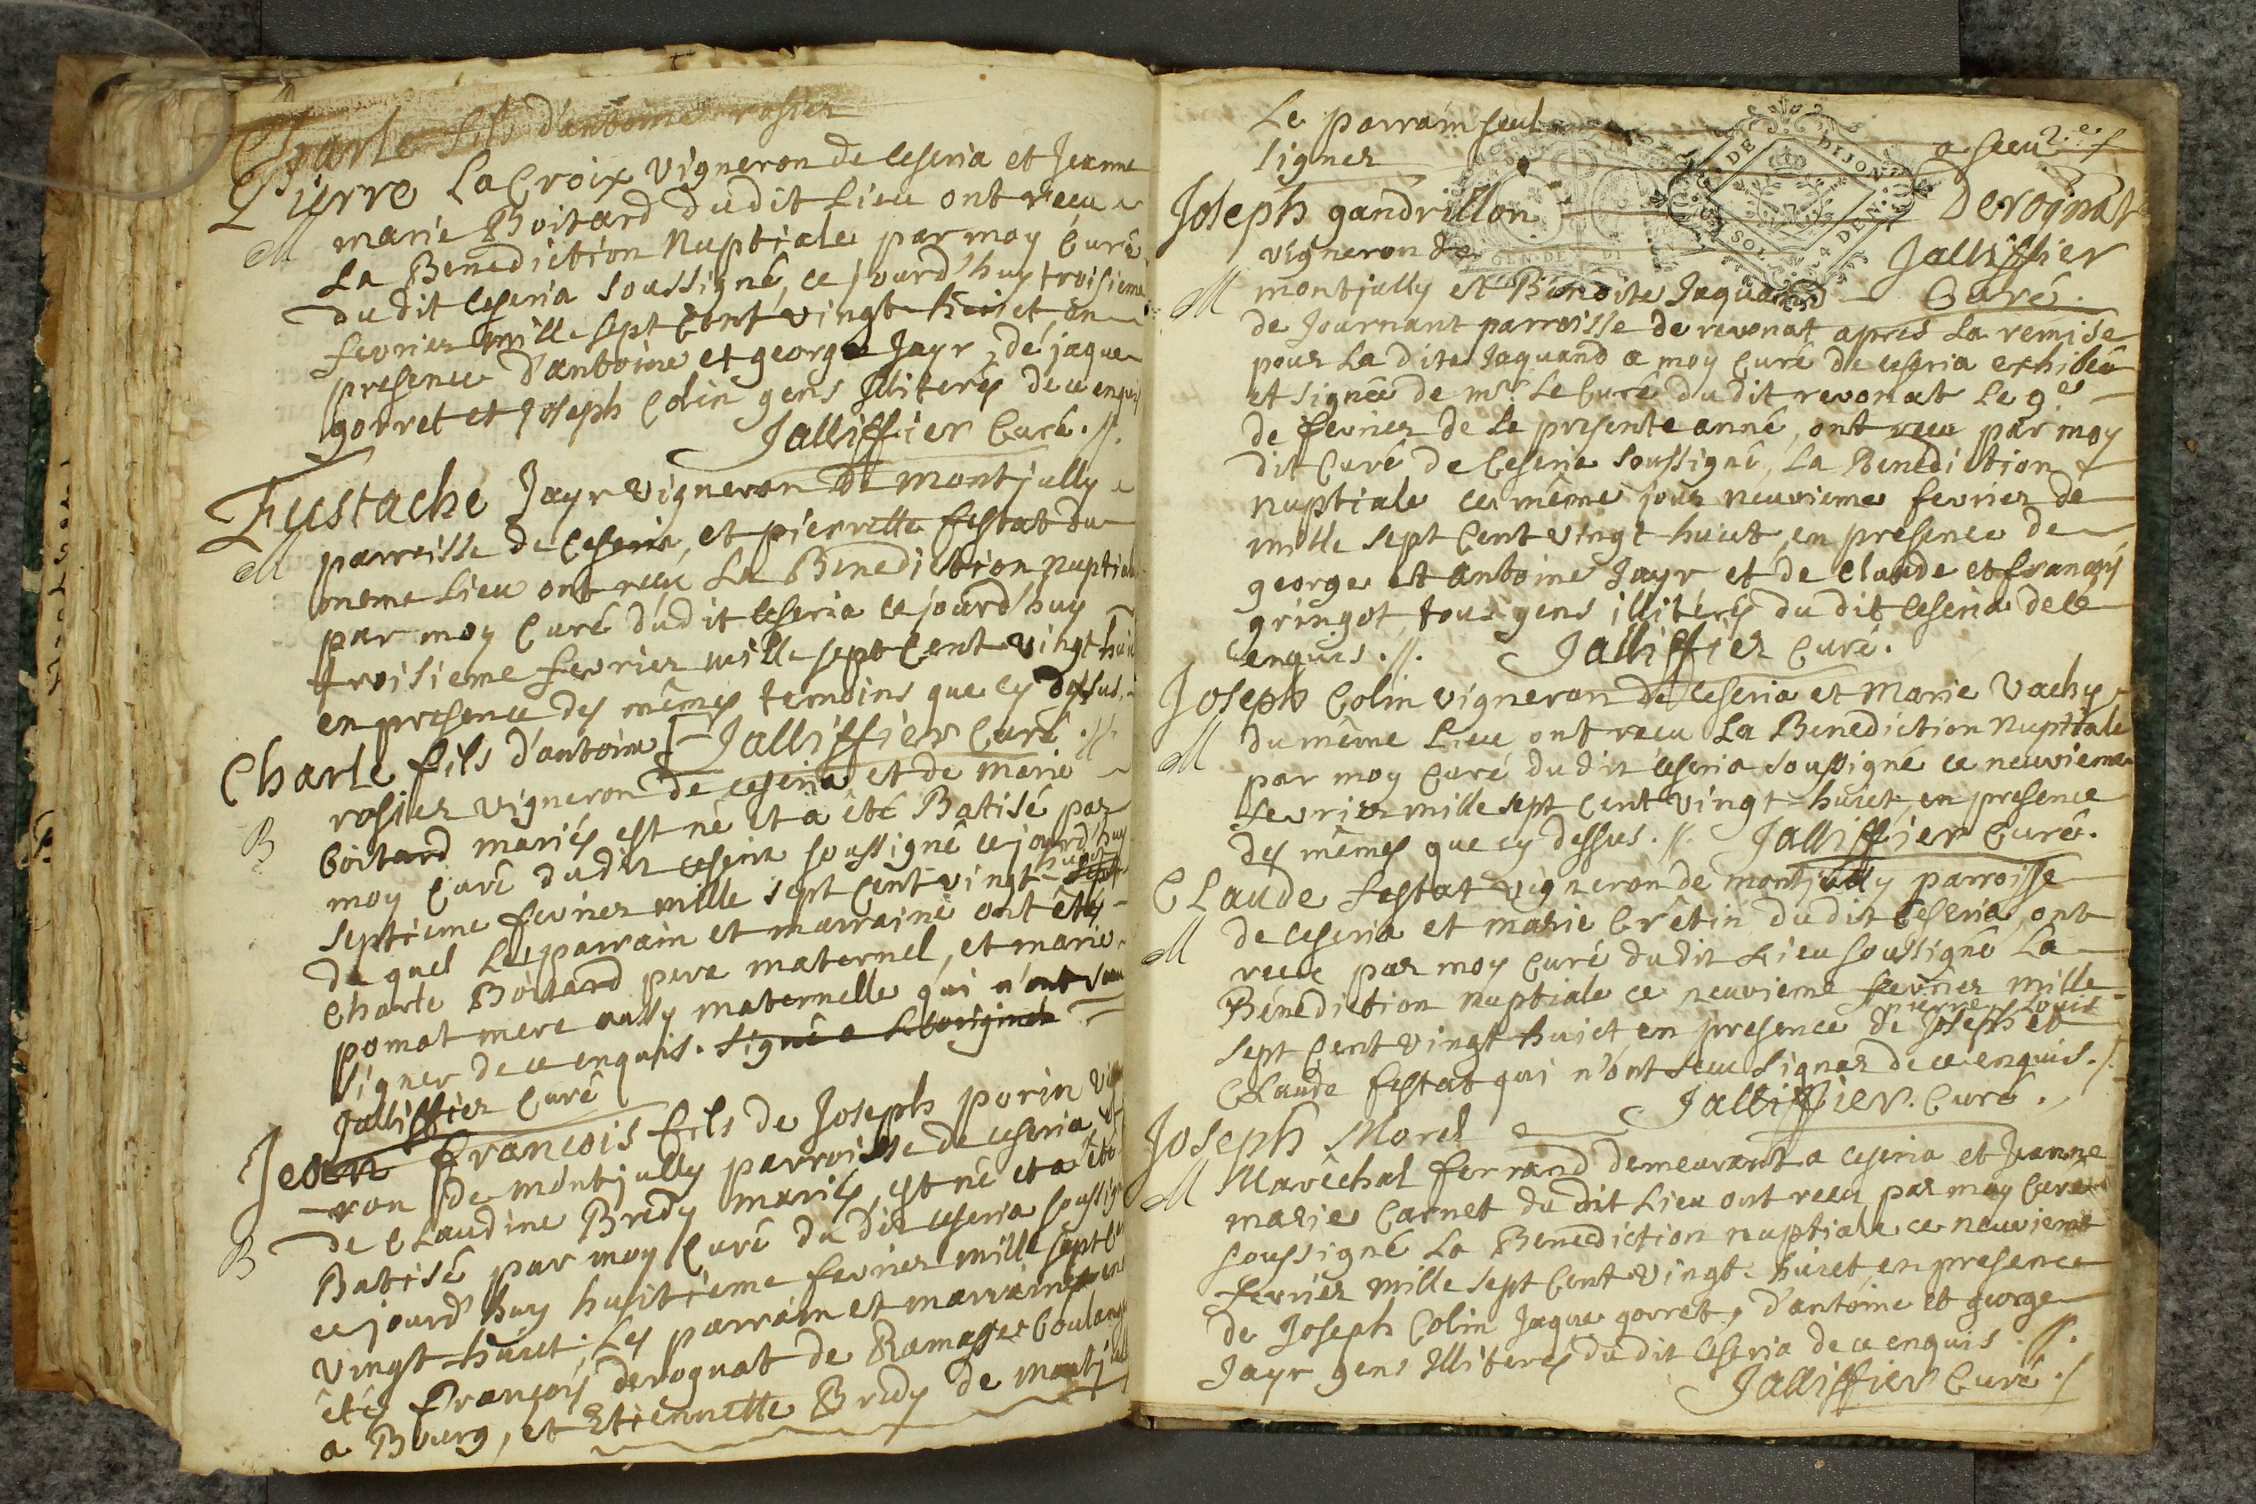 Charle fils d'antoine rosier
Pierre LaCroix vigneron de ceseria et Jeanne
M marie Boitard dudit Lieu ont recu
La Benediction Nuptiale par moy Curé
du dit ceseria soussigné, ce jourd'huy troisieme
fevrier mille sept Cent vingt huict, en
presence d'antoine et george Jayr, de jaque
gorret et Joseph Colin gens Illiterés de ce enquis
Jalliffier Curé.//.
Eustache Jayr vigneron de montjully
M parroisse de Ceseria, et pierrette festat du
meme Lieu ont recu La Benediction nuptiale
par moy Curé dudit ceseria ce jourd'huy
troisieme fevrier mille sept Cent vingt huict
en presence des mêmes temoins que cy dessus.
Charle fils d'antoine [- Jalliffier Curé.//.
rosier vigneron de ceseria et de marie
B boitard mariés est né et a êté Batisé par
moy Curé dudit ceseria soussigné ce jourd'huy
huict
septieme fevrier mille sept Cent vingt sept
du quel Les parrain et marraine ont êtés
Charle Boitard pere maternel, et marie
pomat mere aussy maternelle qui n'ont sceu
signer de ce enquis. signé a L'original
Jalliffier Curé
Jean francois fils de Joseph perin vigne
-ron de montjully parroisse de ceseria, et
de Claudine Bredy mariés, est né et a êté
B Batisé par moy Curé du dit ceseria soussigné
ce jourd'huy huitieme fevrier mille sept Cent
vingt huict, Les parrain et marraine ont
êtés François derognat de Ramasse Boulanger
a Bourg, et Etiennette Bredy de montjully
Le parrain seul a sceu
signer
DE DIJON
GEN. SOL. 4 DEN.
Derognat
Joseph gandrillon
Jalliffier
vigneron de
M montjully et Benoite Jaquand Curé.
de Journant parroisse de revonat apres La remise
pour La dite Jaquand a moy Curé de ceseria exhibée
et signée de mr. Le Curé dudit revonat Le 9e
de fevrier de la presente anné, ont recu par moy
dit Curé de Ceseria soussigné, La Benediction
nuptiale ce même jour neuvieme fevrier de
mille sept Cent vingt huict, en presence de
george et antoine Jayr et de Claude et françois
gringot, tous gens illiterés du dit Ceseria de ce
enquis.//. Jalliffier Curé.
Joseph Colin vigneron de Ceseria et Marie Vachy
M du même Lieu ont recu La Benediction nuptiale
par moy Curé du dit ceseria soussigné ce neuvieme
fevrier mille sept Cent vingt huict, en presence
des mêmes que cy dessus.//. Jalliffier Curé.
CLaude festat vigneron de montjully parroisse
M de ceseria et marie Crêtin du dit Ceseria, ont
recu par moy Curé du dit Lieu soussigné La
Bénediction nuptiale ce neuvieme fevrier mille
pierre Louis
sept Cent vingt huict, en presence de Joseph et
Claude festat qui n'ont sceu signer de ce enquis./.
Jalliffier. Curé.
Joseph Morel
M Marêchal ferrand demeurant a ceseria et Jeanne
marie Carnet du dit Lieu ont recu par moy Curé
soussigné La Benediction nuptiale ce neuvieme
fevrier mille sept Cent vingt huict, en presence
de Joseph Colin Jaque gorret, d'antoine et george
Jayr gens Illiterés du dit Ceseria de ce enquis.//.
Jalliffier Curé./